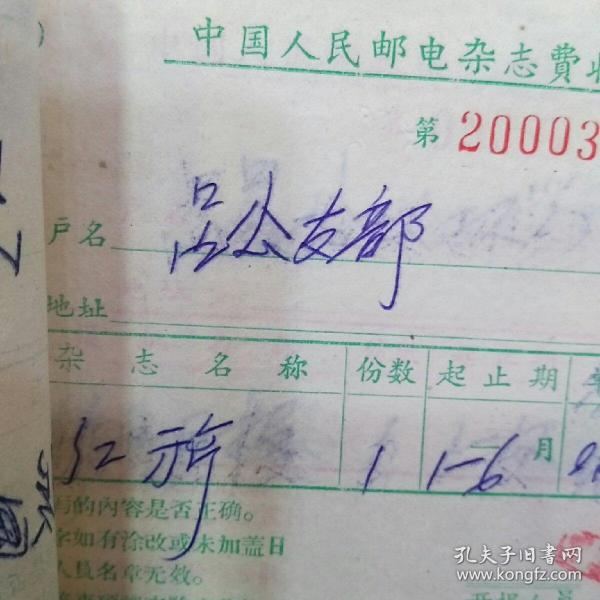 中国人民邮电杂志費收
第 20003
户名 吕公支部
地址
杂志名称 份数 起止期
红旗 1 1-6月
写的內容是否正确。
字如有涂改或未加盖日
人員名章无效。
孔夫子旧书网
www.kongfz.com